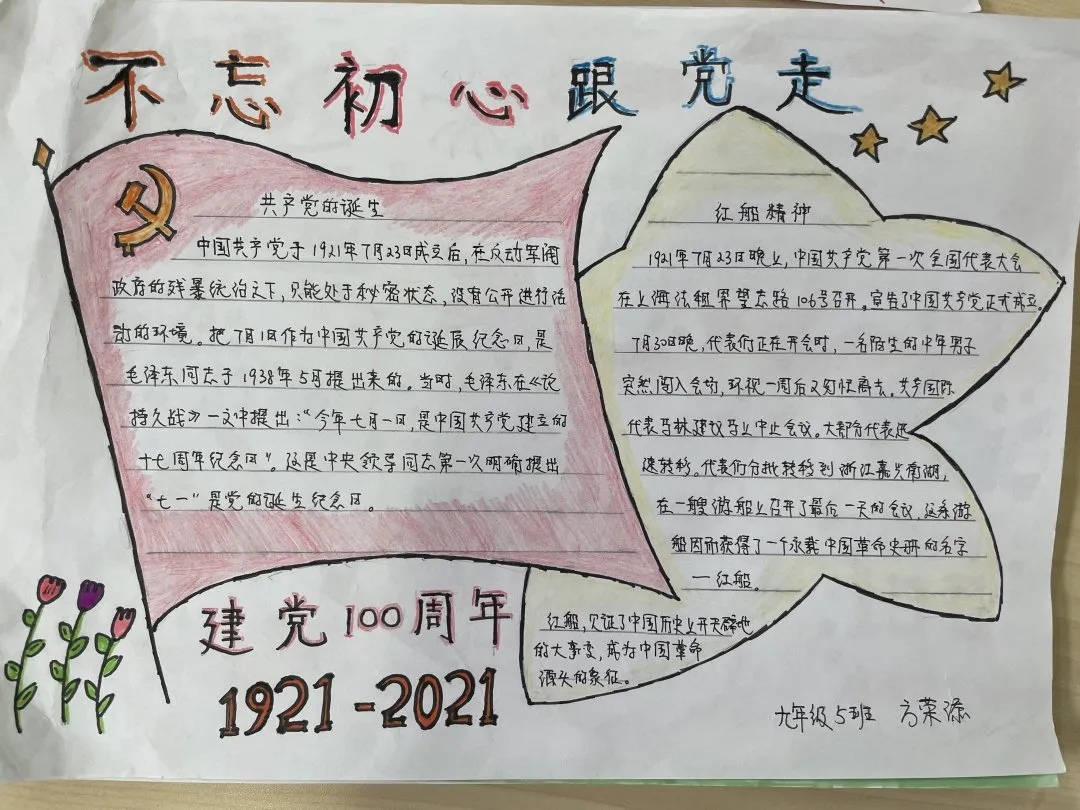 不忘初心跟党走
共产党的诞生
中国共产党于1921年7月23日成立后,在反动军阀
政府的残暴统治之下,只能处于秘密状态,没有公开进行活
动的环境。把7月1日作为中国共产党的诞辰纪念日,是
毛泽东同志于1938年5月提出来的。当时,毛泽东在《论
持久战》一文中提出:“今年七月一日,是中国共产党建立的
十七周年纪念日”。这是中央领导同志第一次明确提出
“七一”是党的诞生纪念日。
红船精神
1921年7月23日晚上,中国共产党第一次全国代表大会
在上海法租界望志路106号召开。宣告了中国共产党正式成立。
7月30日晚,代表们正在开会时,一名陌生的中年男子
突然闯入会场,环视一周后又匆忙离去。共产国际
代表马林建议马上中止会议。大部分代表迅
速转移。代表们分批转移到浙江嘉兴南湖,
在一艘游船上召开了最后一天的会议,这条游
船因而获得了一个永载中国革命史册的名字
—红船。
红船,见证了中国历史上开天辟地
的大事变,成为中国革命
源头的象征。
建党100周年
1921-2021
九年级5班 方荣添